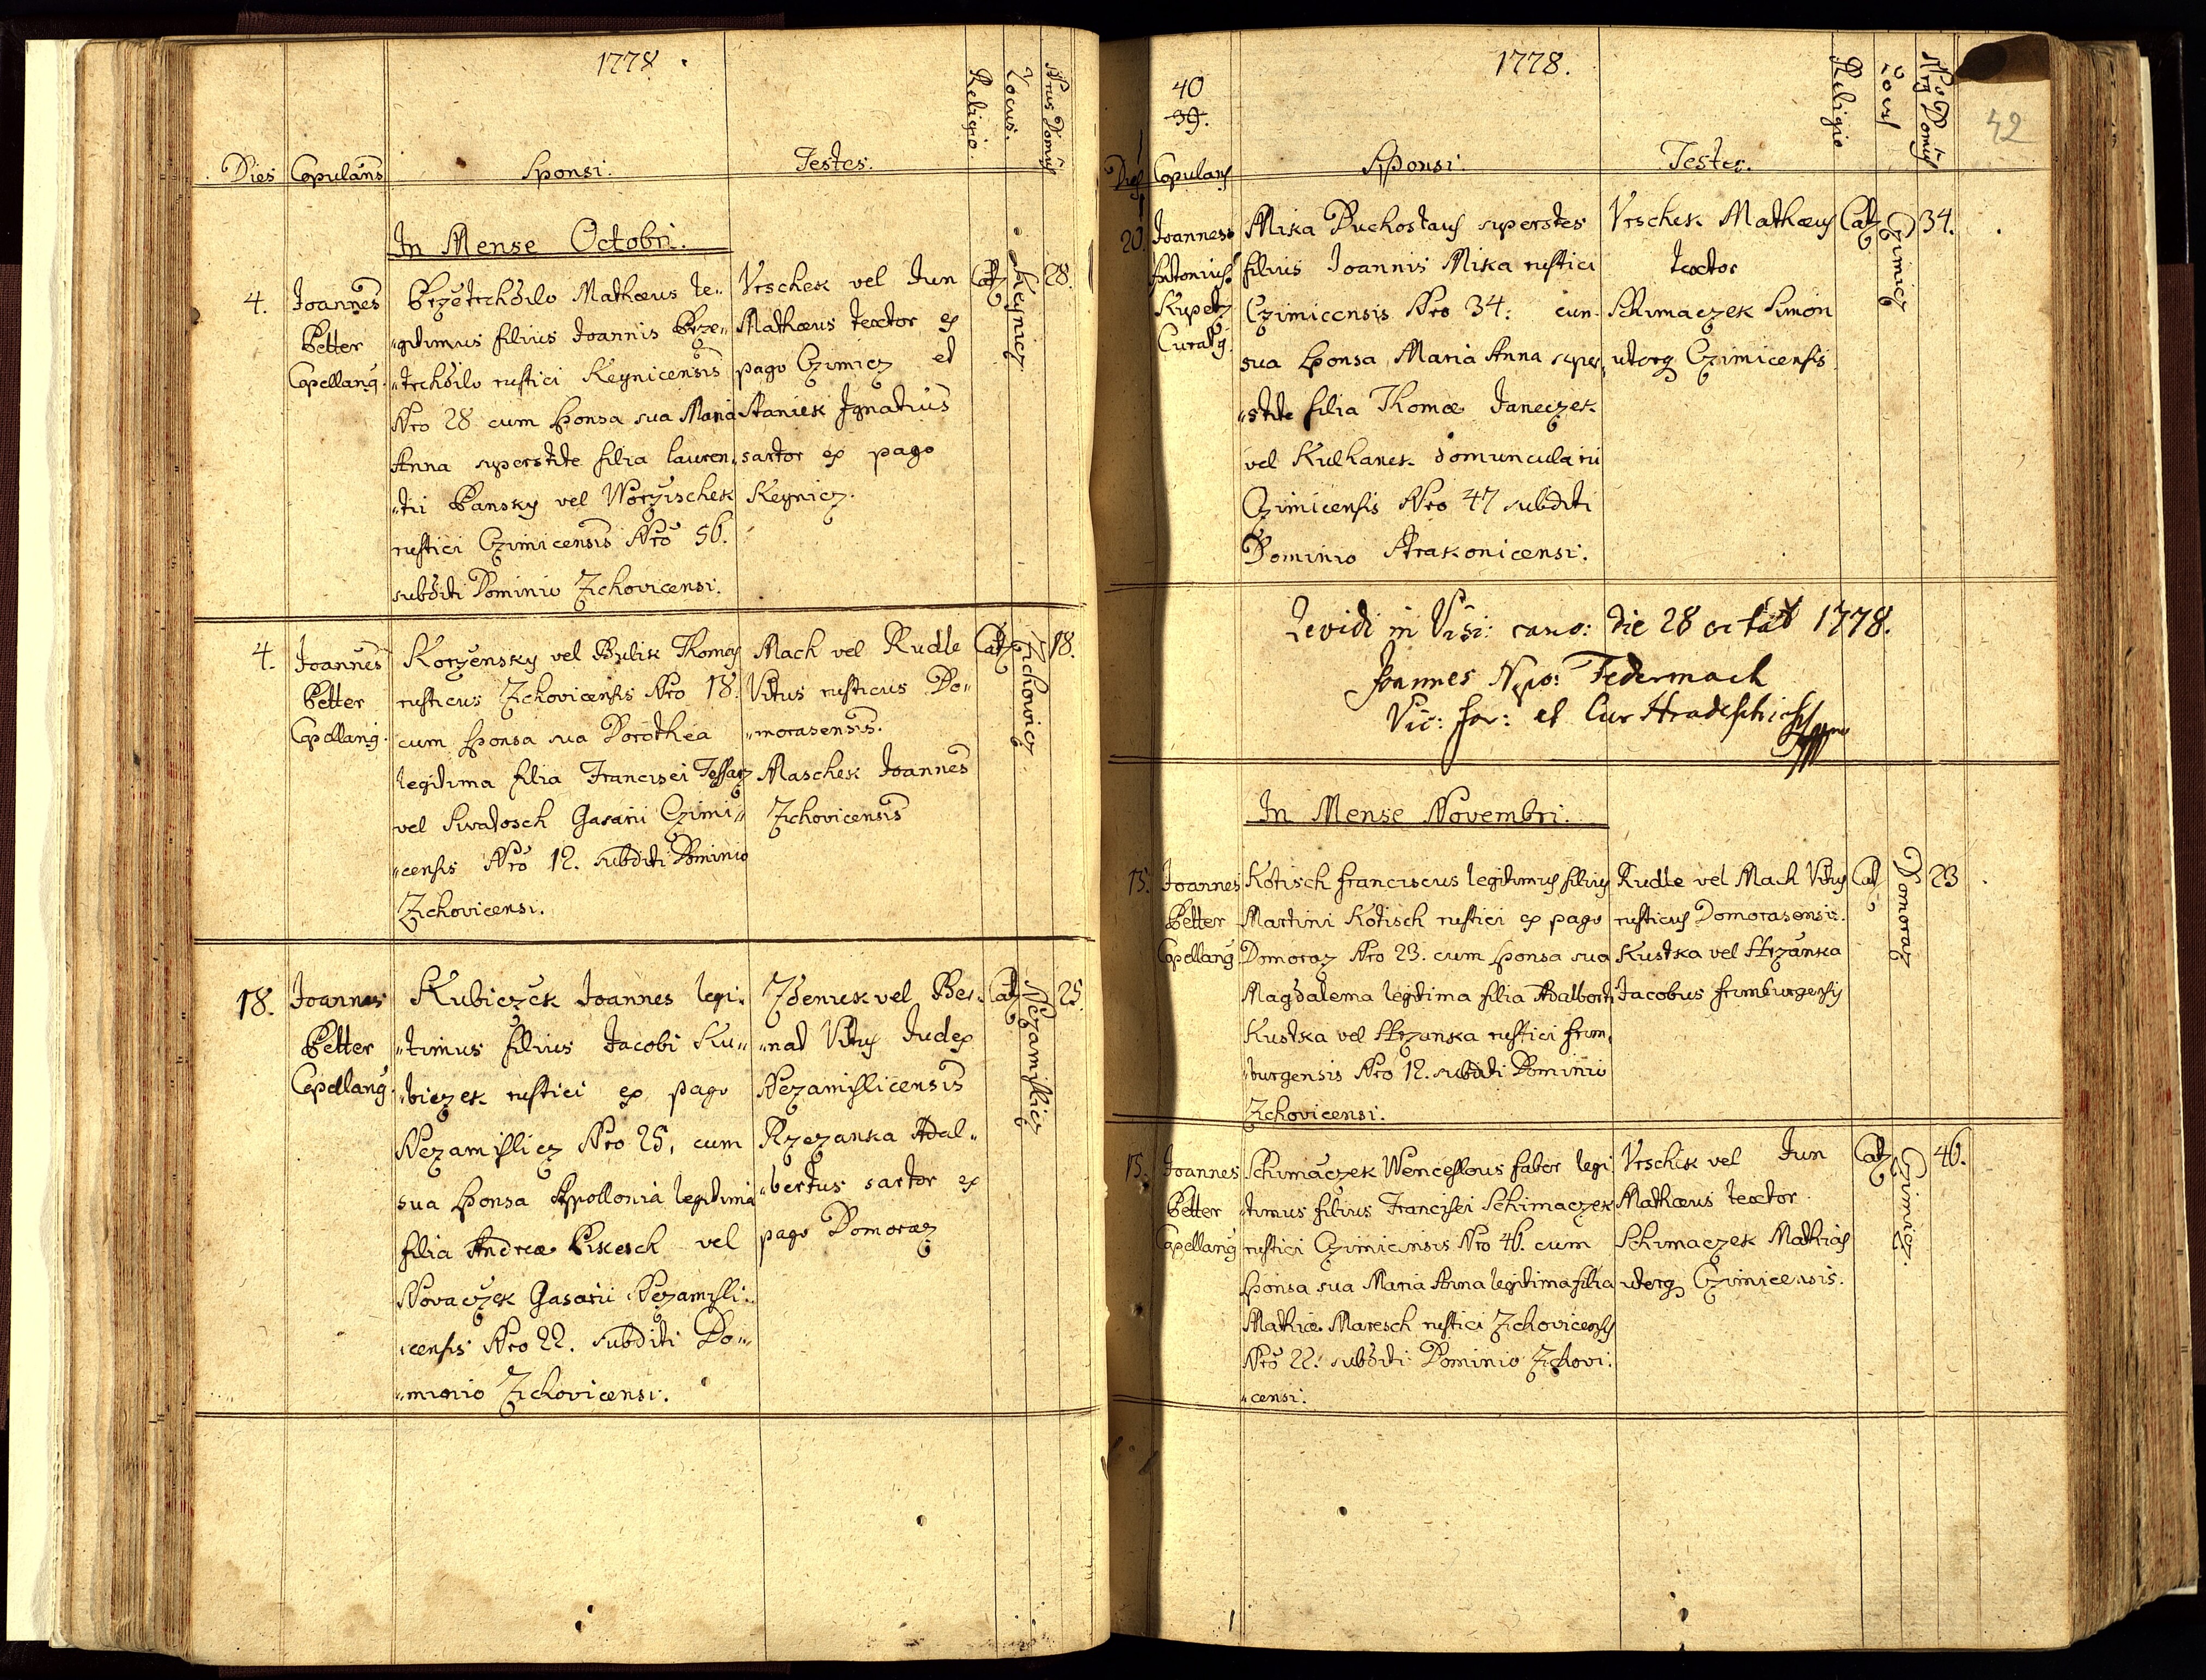 1778.
Dies Copulans Sponsi. Testes. Religio. Locus. Nrus Domus
In Mense Octobri.
4. Joannes Petter Capellang.
Brzetrchdilo Mathæus le„
„gitimus filius Joannis Brze„
„trchdilo rustici Keynicensis
Nro 28 cum Sponsa sua Maria
Anna superstite filia lauren„
„tii Pansky vel Worzischek
rustici Czimicensis Nro 56.
subditi Dominio Zichovicensi.
Vrschek vel Jun
Mathæus textor ex
pago Czimicz et
Staniek Ignatius
sartor ex pago
Keynicz.
Cat. Keynicz 28.
4. Joannes Petter Capellang.
Korzensky vel Bulik Thomas
rusticus Zichovicensis Nro 18.
cum Sponsa sua Dorothea
legitima filia Francisci Tessarz
vel Swatosch Gasarii Czimi„
„censis Nro 12. subditi Dominio
Zichovicensi.
Mach vel Rudle
Vitus rusticus Do„
„morasensis.
Maschek Joannes
Zichovicensis
Cat. Zichovicz 18.
18. Joannes Petter Capellang.
Kubiczek Joannes legi„
„timus filius Jacobi Ku„
„biczek rustici ex pago
Nezamislicz Nro 25, cum
sua Sponsa Appollonia legitima
filia Andreæ Pikesch vel
Novaczek Gasarii Nezamisli„
„censis Nro 22. subditi Do„
„minio Zichovicensi.
Zdeniek vel Ber„
„nat Vitus Judex
Nezamislicensis
Rzezanka Adal„
„bertus sartor ex
pago Domoraz
Cat. Nezamislicz 25.
1778.
40
39.
42
Dies Copulans Sponsi. Testes. Religio Locus Nrus Domus
20. Joannes Antonius Kupetz Curatg.
Mika Buchostaus superstes
filius Joannis Mika rustici
Czimicensis Nro 34: cum
sua Sponsa Maria Anna super„
„stite filia Thomæ Janeczek
vel Kulhanek domuncularii
Czimicensis Nro 47 subditi
Dominio Strakonicensi.
Vrschek Mathæus
textor
Schimaczek Simon
uterq Czimicensis
Cat. Czimicz 34.
Revidi in Visi: cano: die 28 octob 1778.
Joannes Nepo: Federmach
Vic: for: et Cur Hradeschicensis
In Mense Novembri.
15. Joannes Petter Capellang
Kotisch franciscus legitimus filius
Martini Kotisch rustici ex pago
Domoraz Nro 23. cum Sponsa sua
Magdalema legitima filia Adalberti
Kustka vel Hrzanka rustici frim„
„burgensis Nro 12. subditi Dominio
Zichovicensi.
Rudle vel Mach Vitus
rusticus Domorasensis.
Kustka vel Hrzanka
Jacobus frimburgensis
Cat Domoraz 23
15. Joannes Petter Capellang
Schimaczek Wenceslaus faber legi
timus filius Francisci Schimaczek
rustici Czimicensis Nro 46. cum
Sponsa sua Maria Anna legitima filia
Mathiæ Maresch rustici Zichovicensis
Nro 22. subditi Dominio Zichovi„
„censi.
Vrschek vel Jun
Mathæus textor
Schimaczek Mathias
uterq Czimicensis.
Cat Czimicz. 46.